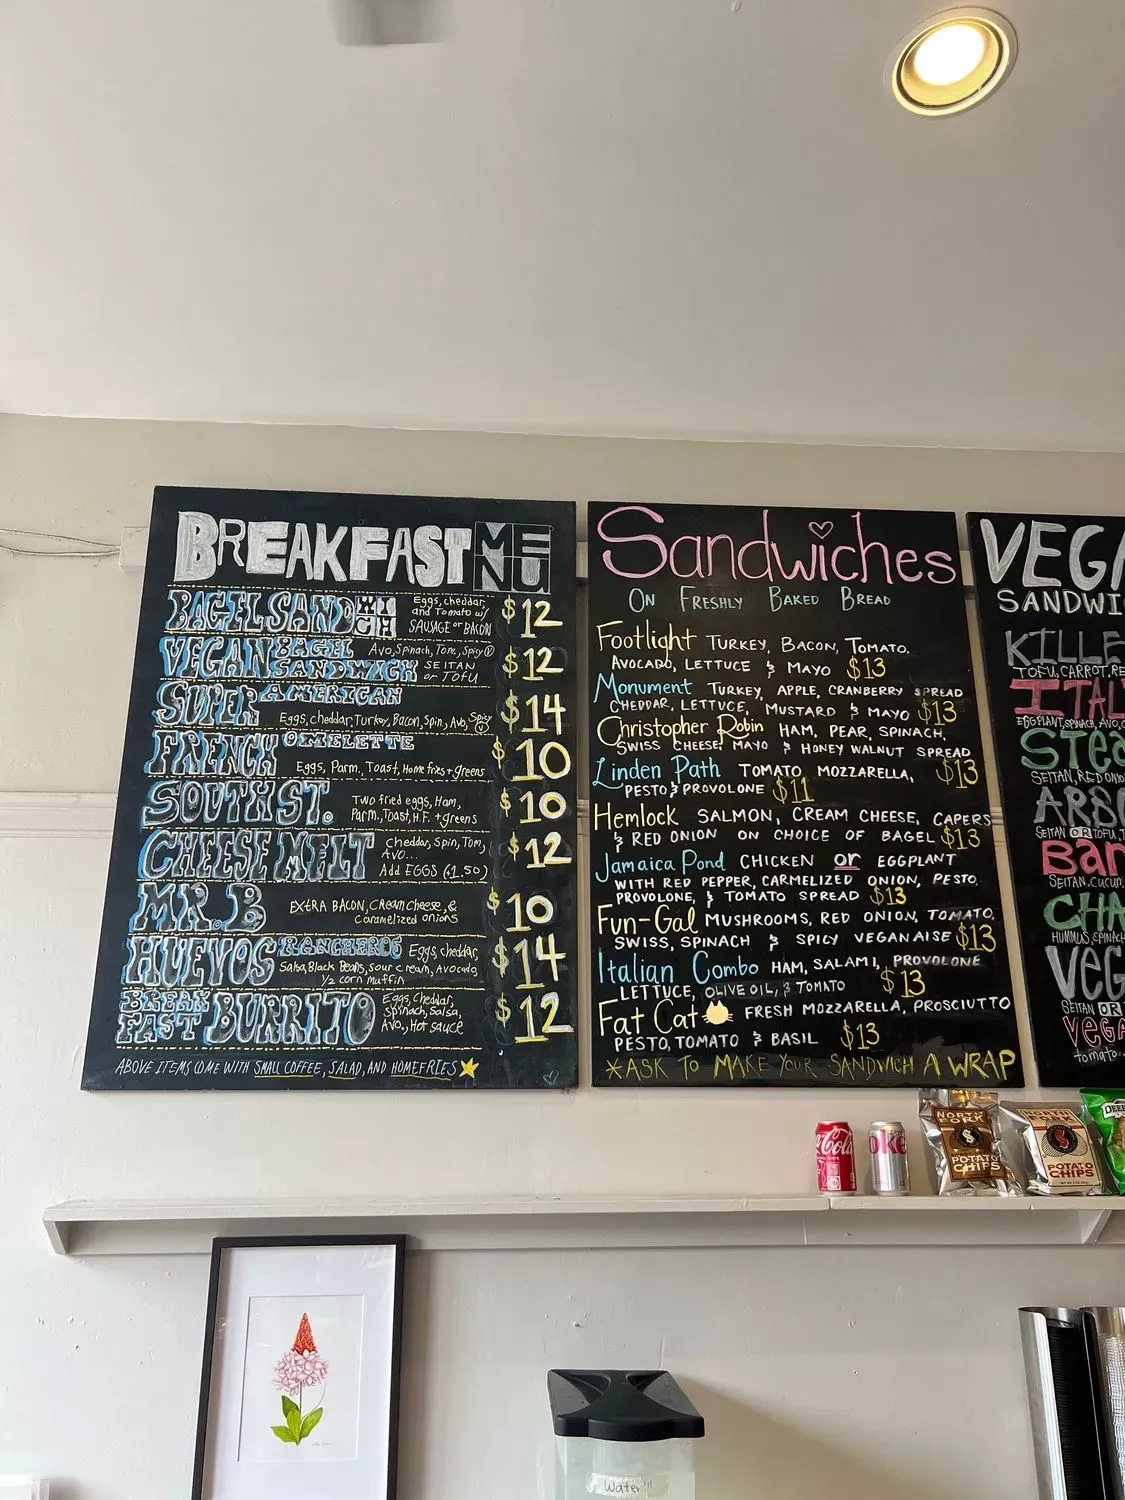 BREAKFAST MENU
BAGEL SANDWICH Eggs, cheddar, and Tomato w/ SAUSAGE or BACON $12
VEGAN BAGEL SANDWICH Avo, Spinach, Tom, Spicy V SEITAN or TOFU $12
SUPER AMERICAN Eggs, cheddar, Turkey, Bacon, Spin, Avo, Spicy V $14
FRENCH OMELETTE Eggs, Parm, Toast, Home fries + greens $10
SOUTH ST. Two fried eggs, Ham, Parm, Toast, H.F. + greens $10
CHEESE MELT cheddar, Spin, Tom, AVO... Add EGGS (+1.50) $12
MR. B EXTRA BACON, Cream cheese, & Caramelized onions $10
HUEVOS RANCHEROS Eggs, cheddar, Salsa, Black Beans, sour cream, Avocado, 1/2 corn muffin $14
BREAKFAST BURRITO Eggs, Cheddar, Spinach, Salsa, Avo, Hot sauce $12
ABOVE ITEMS COME WITH SMALL COFFEE, SALAD, AND HOMEFRIES
Sandwiches
ON FRESHLY BAKED BREAD
Footlight TURKEY, BACON, TOMATO,
AVOCADO, LETTUCE & MAYO $13
Monument TURKEY, APPLE, CRANBERRY SPREAD
CHEDDAR, LETTUCE, MUSTARD & MAYO $13
Christopher Robin HAM, PEAR, SPINACH,
SWISS CHEESE, MAYO & HONEY WALNUT SPREAD
Linden Path TOMATO, MOZZARELLA, $13
PESTO & PROVOLONE $11
Hemlock SALMON, CREAM CHEESE, CAPERS
& RED ONION ON CHOICE OF BAGEL $13
Jamaica Pond CHICKEN or EGGPLANT
WITH RED PEPPER, CARMELIZED ONION, PESTO,
PROVOLONE, & TOMATO SPREAD $13
Fun-Gal MUSHROOMS, RED ONION, TOMATO,
SWISS, SPINACH & SPICY VEGANAISE $13
Italian Combo HAM, SALAMI, PROVOLONE
LETTUCE, OLIVE OIL, & TOMATO $13
Fat Cat FRESH MOZZARELLA, PROSCIUTTO
PESTO, TOMATO & BASIL $13
*ASK TO MAKE YOUR SANDWICH A WRAP
VEG
SANDWI
KILLE
TOFU, CARROT, RE
ITAL
EGGPLANT, SPINACH, AVO,
STEA
SEITAN, RED ONIO
ARBO
SEITAN OR TOFU,
Ban
SEITAN, CUCUM
CHA
HUMMUS, SPINACH
VEG
SEITAN OR
VEGA
tomato,
Coca-Cola
oke
NORTH FORK
POTATO CHIPS
NORTH FORK
POTATO CHIPS
DEEP
Water